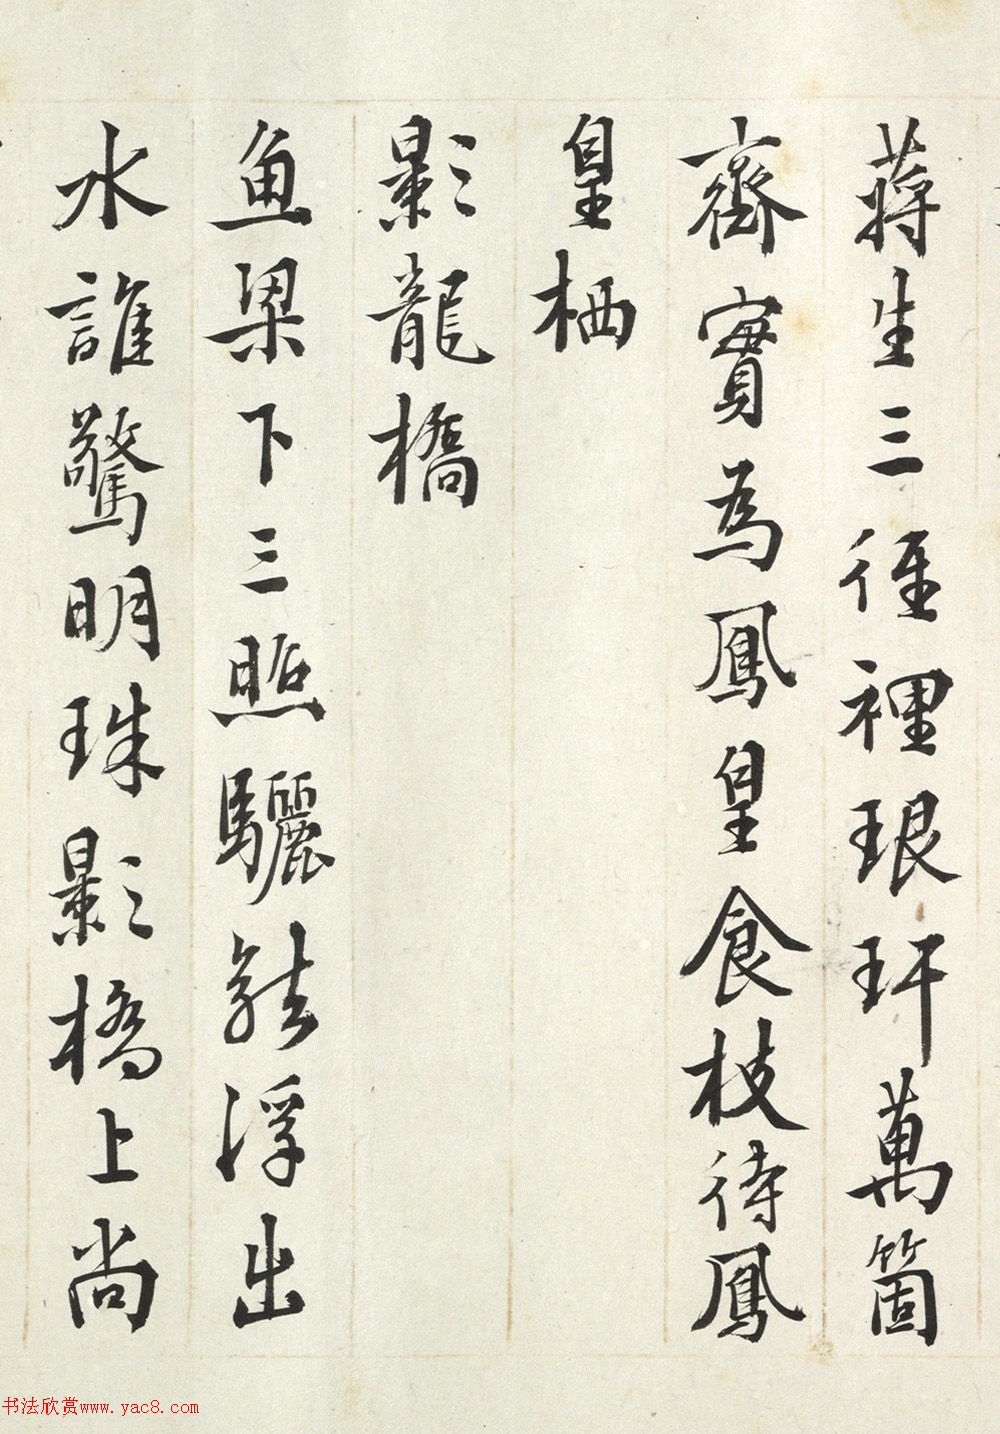 蔣生三徑裡琅玕萬箇
齊實為鳳皇食枝待鳳
皇栖
影龍橋
魚梁下三照驪能浮出
水誰驚明珠影橋上尚
书法欣赏www.yac8.com